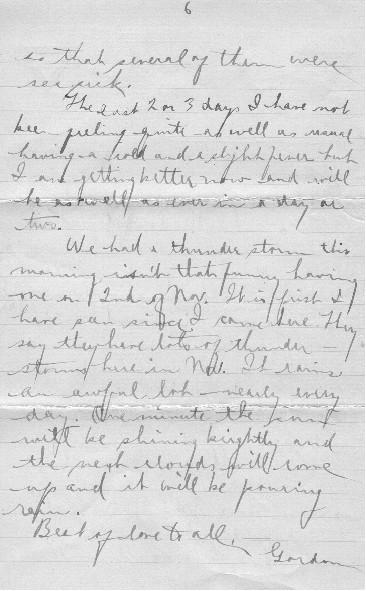 6
so that several of them were
sea sick.
The last 2 or 3 days I have not
been feeling quite as well as usual
having a cold and a slight fever but
I am getting better now and will
be as well as ever in a day or
two.
We had a thunder storm this
morning isn't that funny having
one on 2nd of Nov. It is first I
have seen since I came here They
say they have lots of thunder –
storms here in Nov. It rains
an awful lot – nearly every
day. One minute the sun
will be shining brightly and
the next clouds will come
up and it will be pouring
rain.
Best of love to all,
Gordon